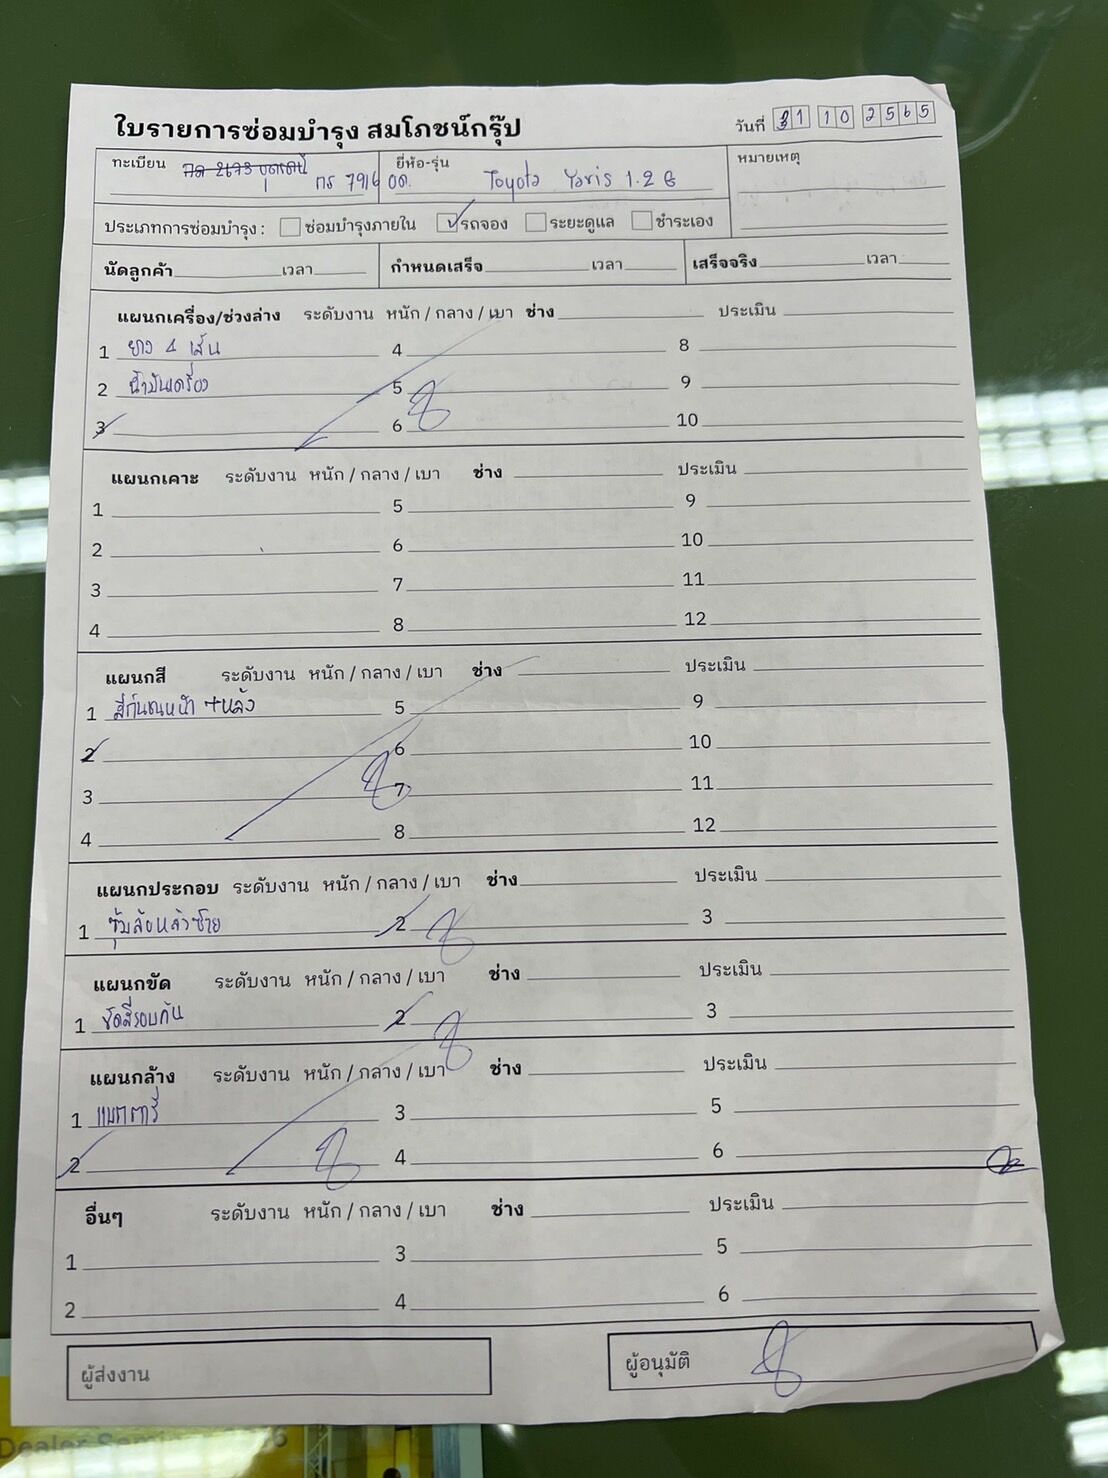 ใบรายการซ่อมบำรุง สมโภชน์กรุ๊ป
วันที่ 31 10 2565
ทะเบียน กต 2673 อุดรธานี กร 7916 อด. ยี่ห้อ-รุ่น Toyota Yaris 1.2 G หมายเหตุ
ประเภทการซ่อมบำรุง : ซ่อมบำรุงภายใน รถจอง ระยะดูแล ชำระเอง
นัดลูกค้า เวลา กำหนดเสร็จ เวลา เสร็จจริง เวลา
แผนกเครื่อง/ช่วงล่าง ระดับงาน หนัก / กลาง / เบา ช่าง ประเมิน
1 ยาง 4 เส้น 4 8
2 น้ำมันเครื่อง 5 9
3 6 10
แผนกเคาะ ระดับงาน หนัก / กลาง / เบา ช่าง ประเมิน
1 5 9
2 6 10
3 7 11
4 8 12
แผนกสี ระดับงาน หนัก / กลาง / เบา ช่าง ประเมิน
1 สีกันชนหน้า + หลัง 5 9
2 6 10
3 7 11
4 8 12
แผนกประกอบ ระดับงาน หนัก / กลาง / เบา ช่าง ประเมิน
1 ซุ้มล้อหลังซ้าย 2 3
แผนกขัด ระดับงาน หนัก / กลาง / เบา ช่าง ประเมิน
1 ขัดสีรอบคัน 2 3
แผนกล้าง ระดับงาน หนัก / กลาง / เบา ช่าง ประเมิน
1 แบตตารี่ 3 5
2 4 6
อื่นๆ ระดับงาน หนัก / กลาง / เบา ช่าง ประเมิน
1 3 5
2 4 6
ผู้ส่งงาน ผู้อนุมัติ
Dealer